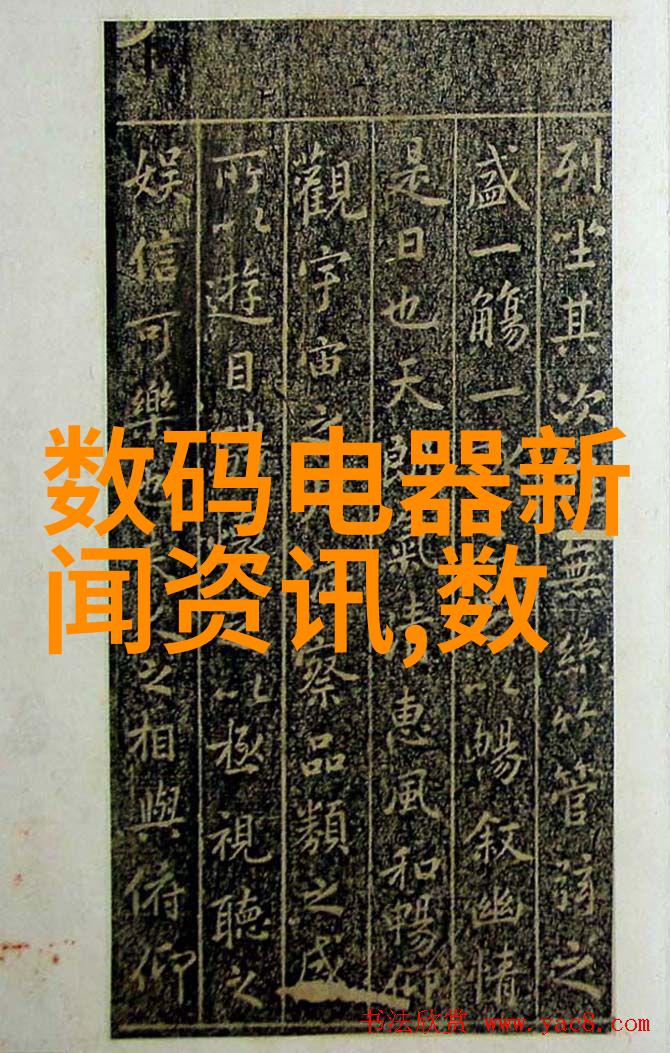 列坐其次無絲竹管弦之
盛一觴一以暢叙幽情
是日也天朗氣清惠風和暢仰
觀宇宙之察品類之盛
所以遊目以極視聽之
娱信可樂也夫人之相與俯仰
数码电器新
闻资讯,数
书法欣赏 www.yac8.com